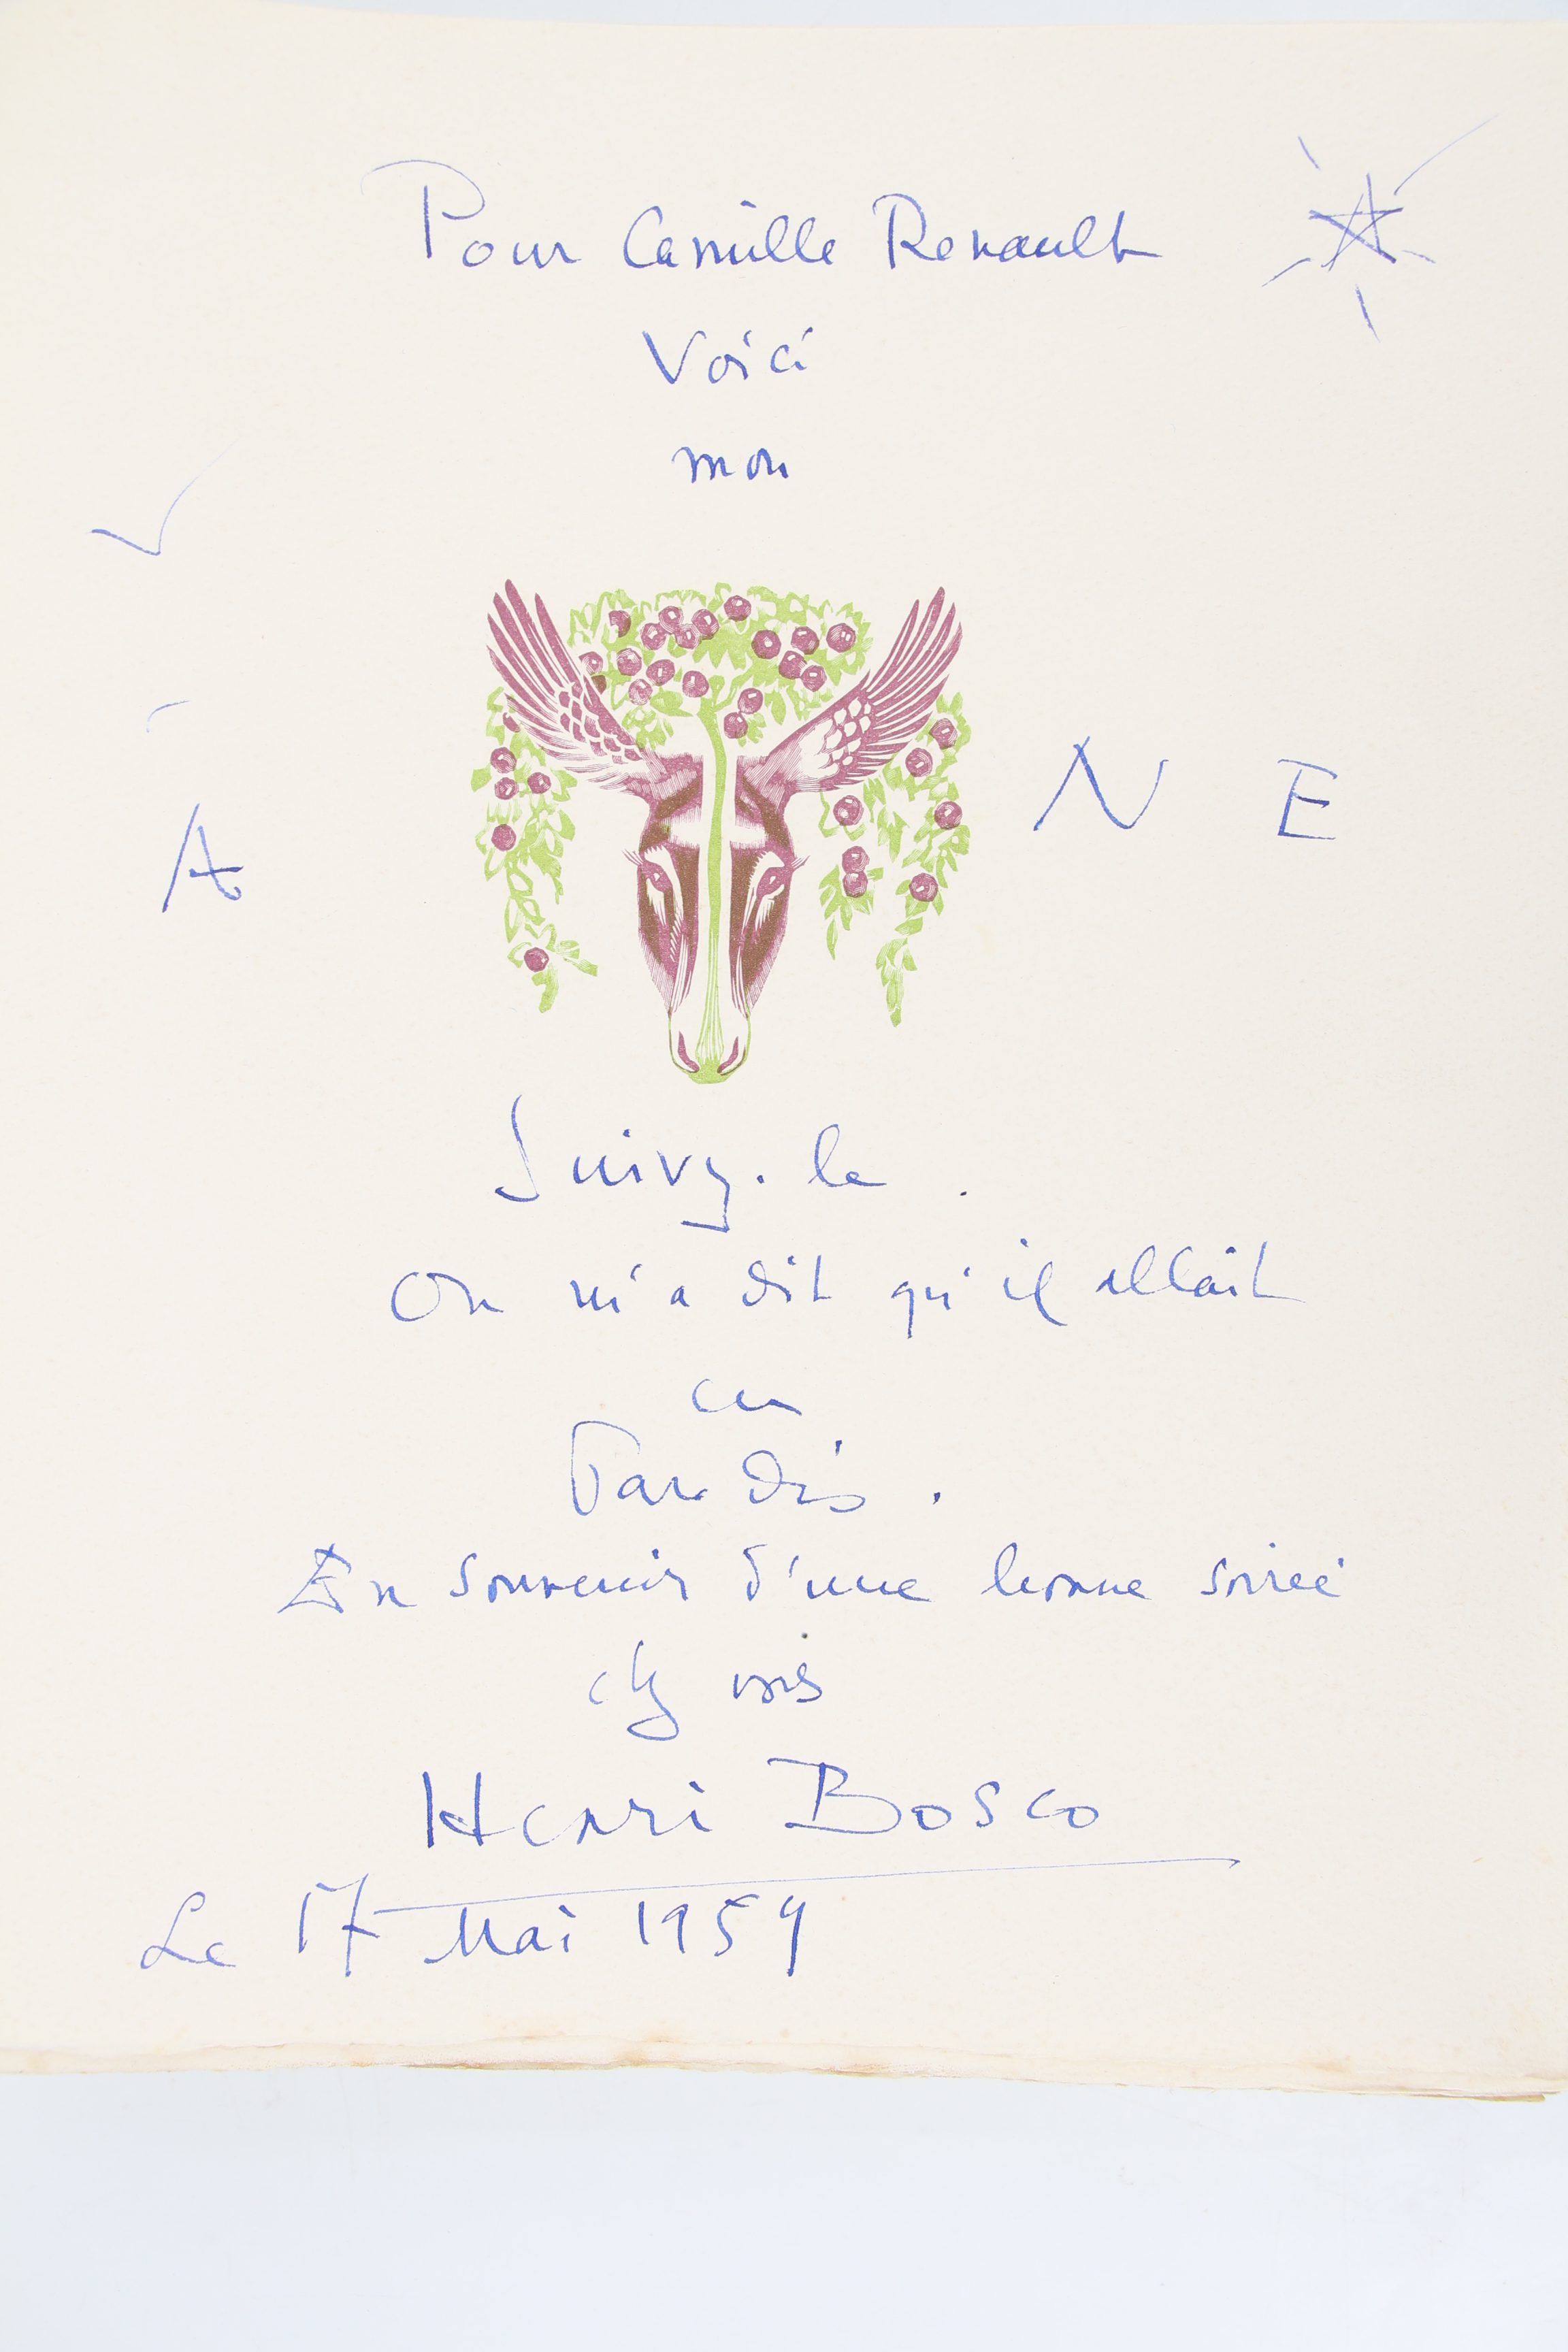 Pour Camille Renault
Voici
mon
Â N E
Suivez-le.
On m'a dit qu'il allait
en
Paradis.
En souvenir d'une bonne soirée
chez vous
Henri Bosco
Le 17 Mai 1959